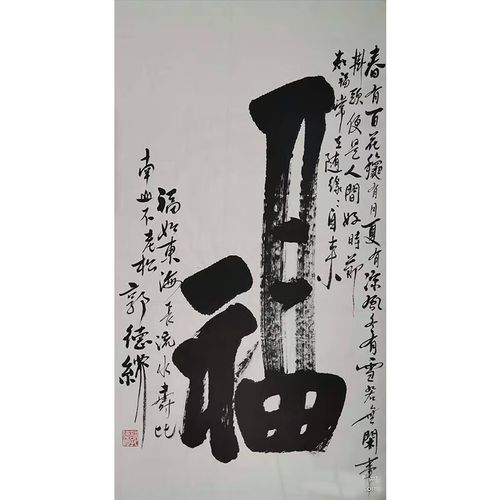 春有百花龝有月夏有涼風冬有雪若無閑事
掛頭便是人間好時節
知福常在随緣〻自来
福
福如東海長流水壽比
南山不老松 郭德綱